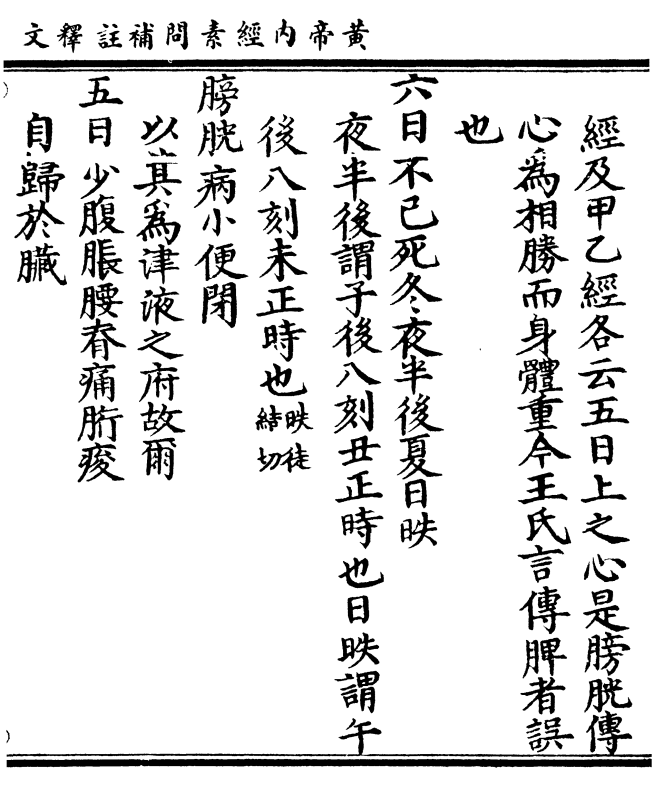 黃帝內經素問補註釋文
經及甲乙經各云五日上之心是膀胱傳
心爲相勝而身體重今王氏言傳脾者誤
也
六日不已死冬夜半後夏日昳
夜半後謂子後八刻丑正時也日昳謂午
後八刻未正時也昳徒結切
膀胱病小便閉
以其爲津液之府故爾
五日少腹脹腰脊痛胻痠
自歸於臟